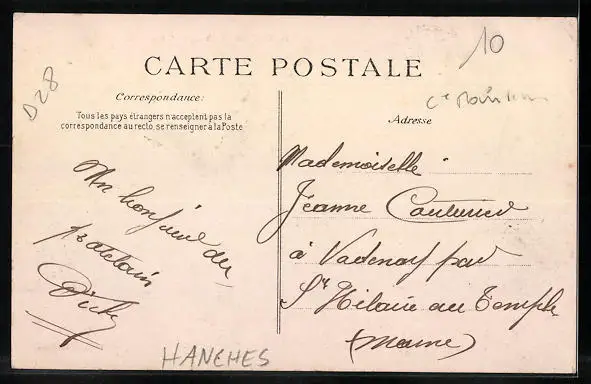 10
D28
CARTE POSTALE
Correspondance:
Tous les pays étrangers n'acceptent pas la
correspondance au recto, se renseigner à la Poste
Adresse
Un bonjour du
Mademoiselle
Jeanne
à Vadenay par
St Hilaire au Temple
(Marne)
HANCHES